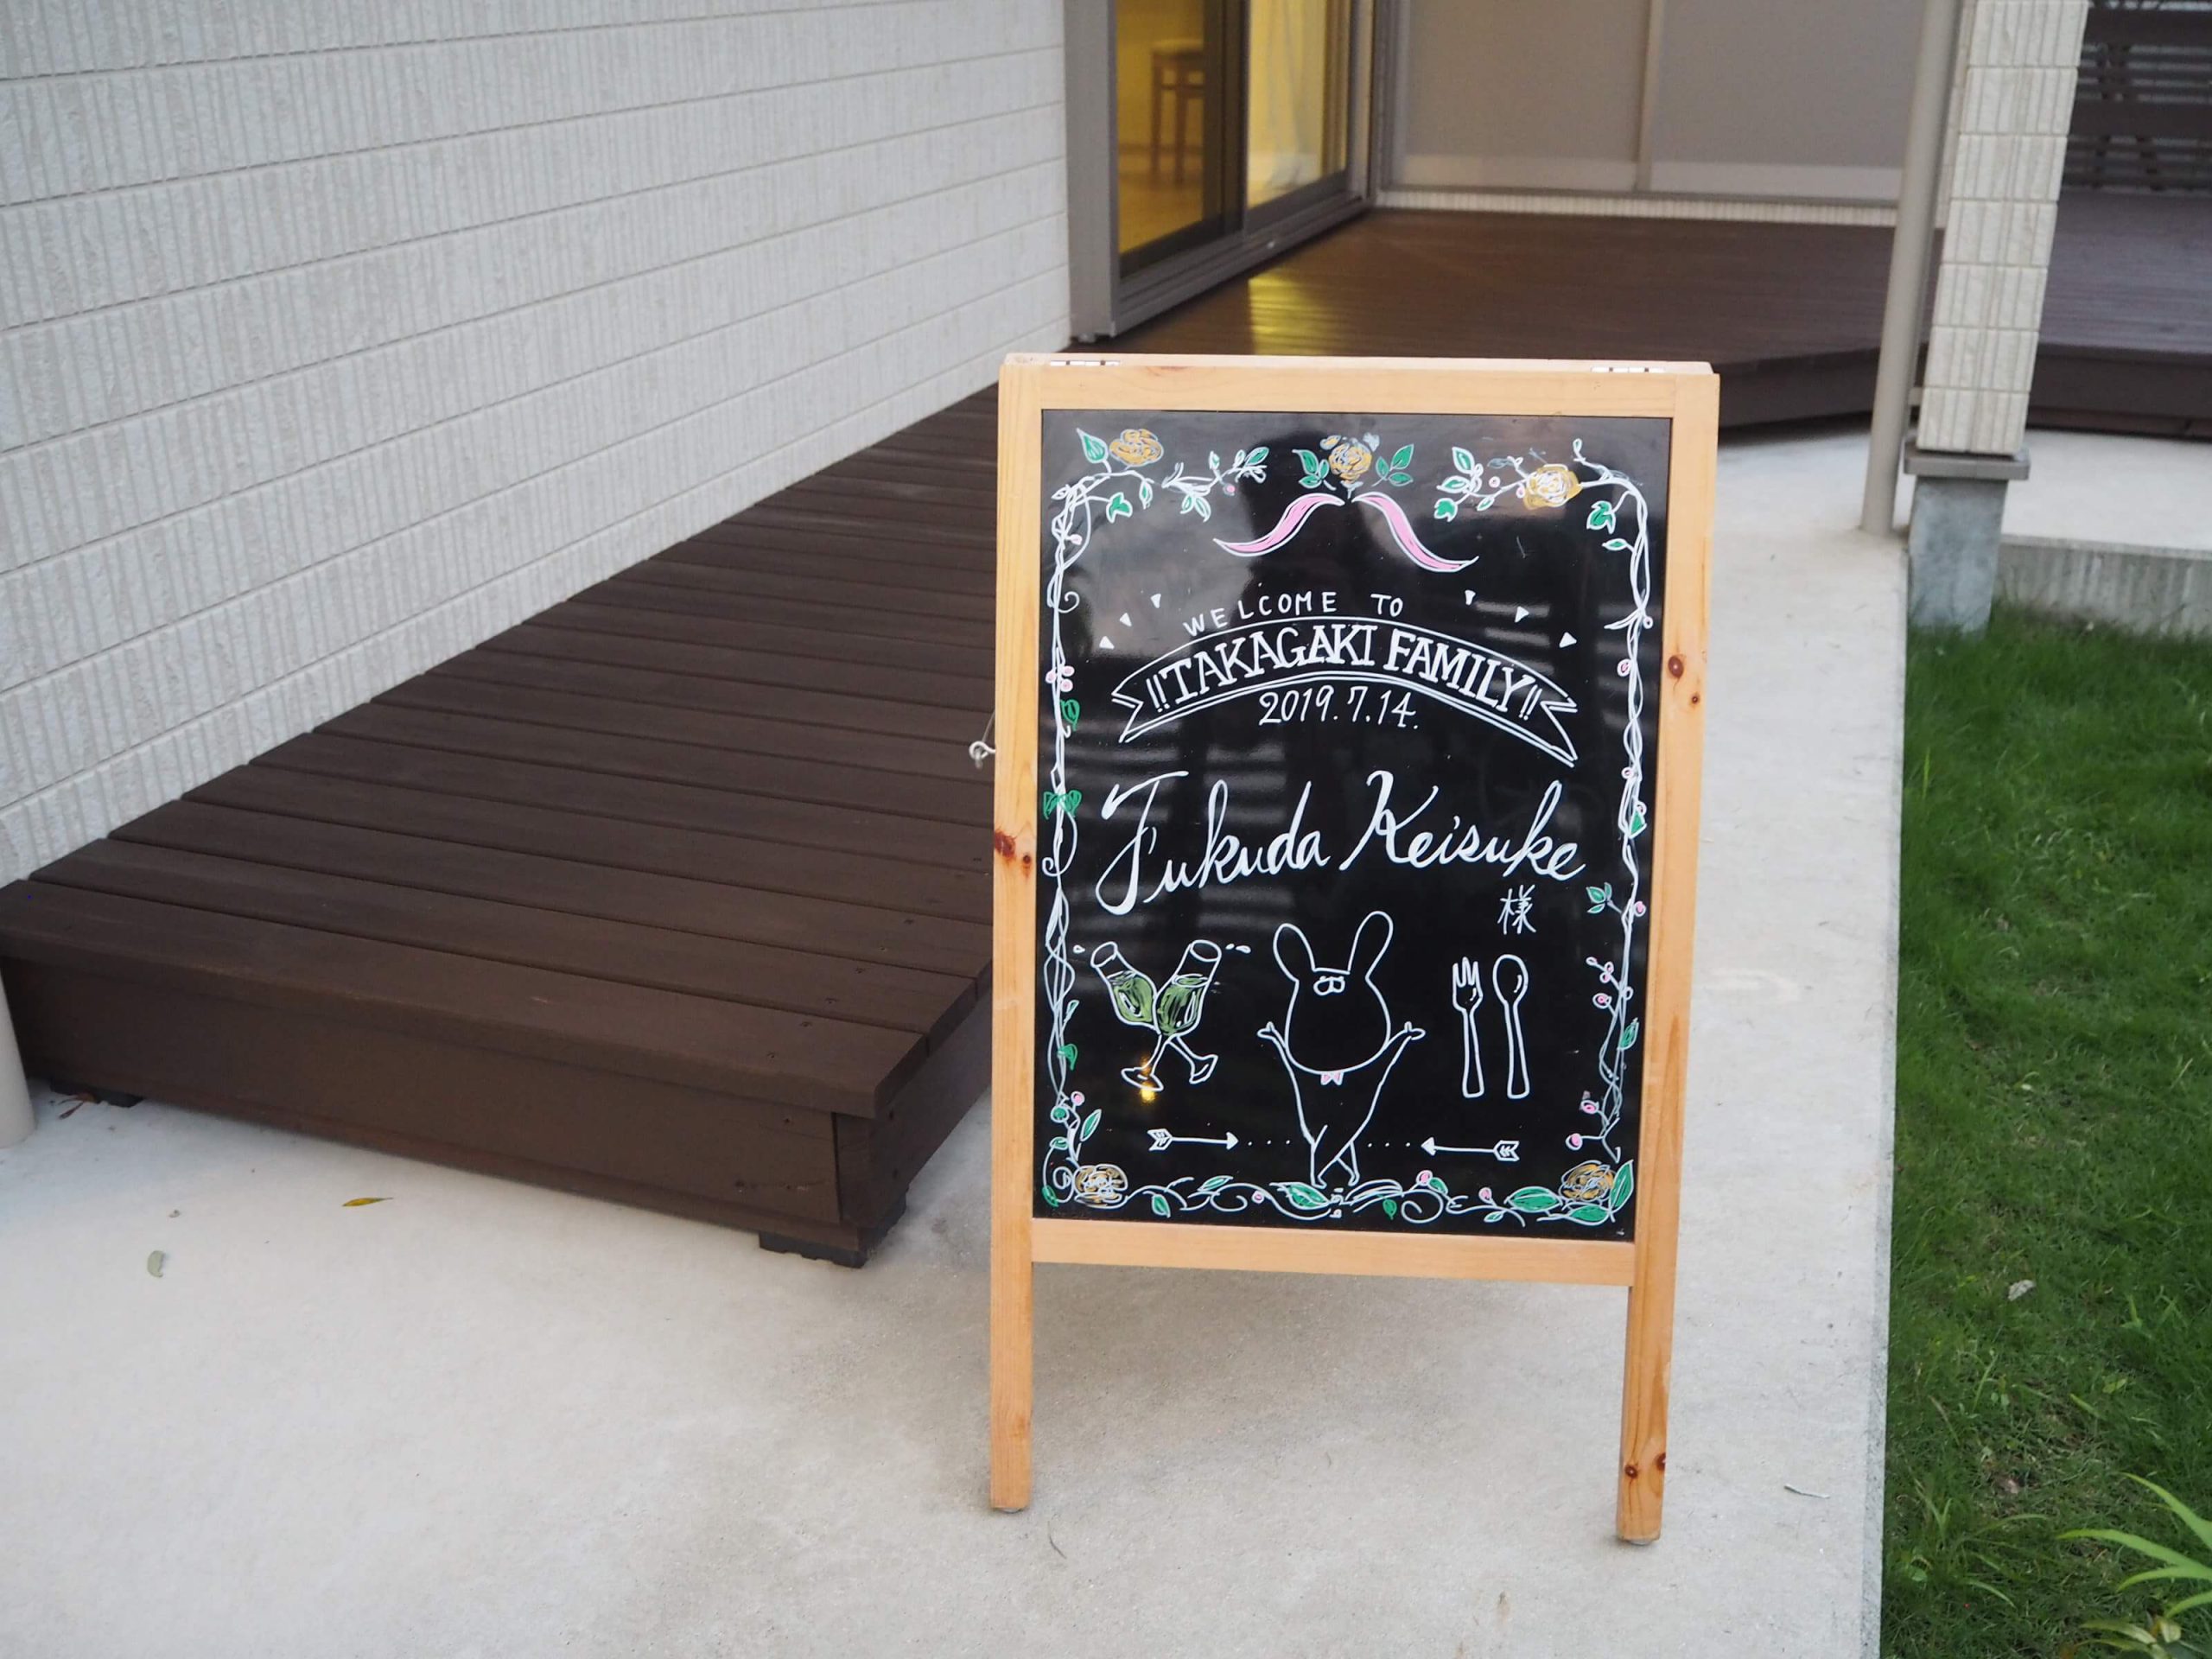 WELCOME TO
!!TAKAGAKI FAMILY!!
2019.7.14.
Fukuda Keisuke
様